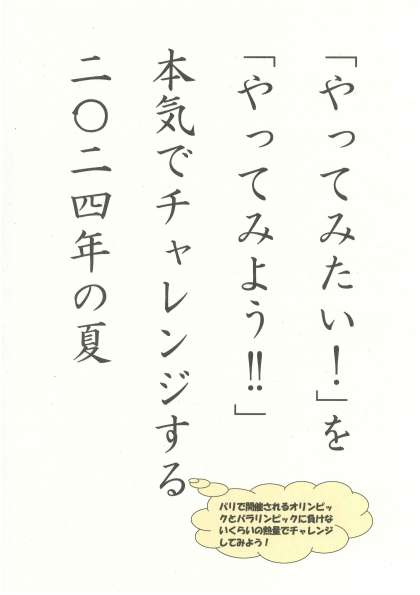 「やってみたい！」を
「やってみよう!!」
本気でチャレンジする
二〇二四年の夏
パリで開催されるオリンピッ
クとパラリンピックに負けな
いくらいの熱量でチャレンジ
してみよう！